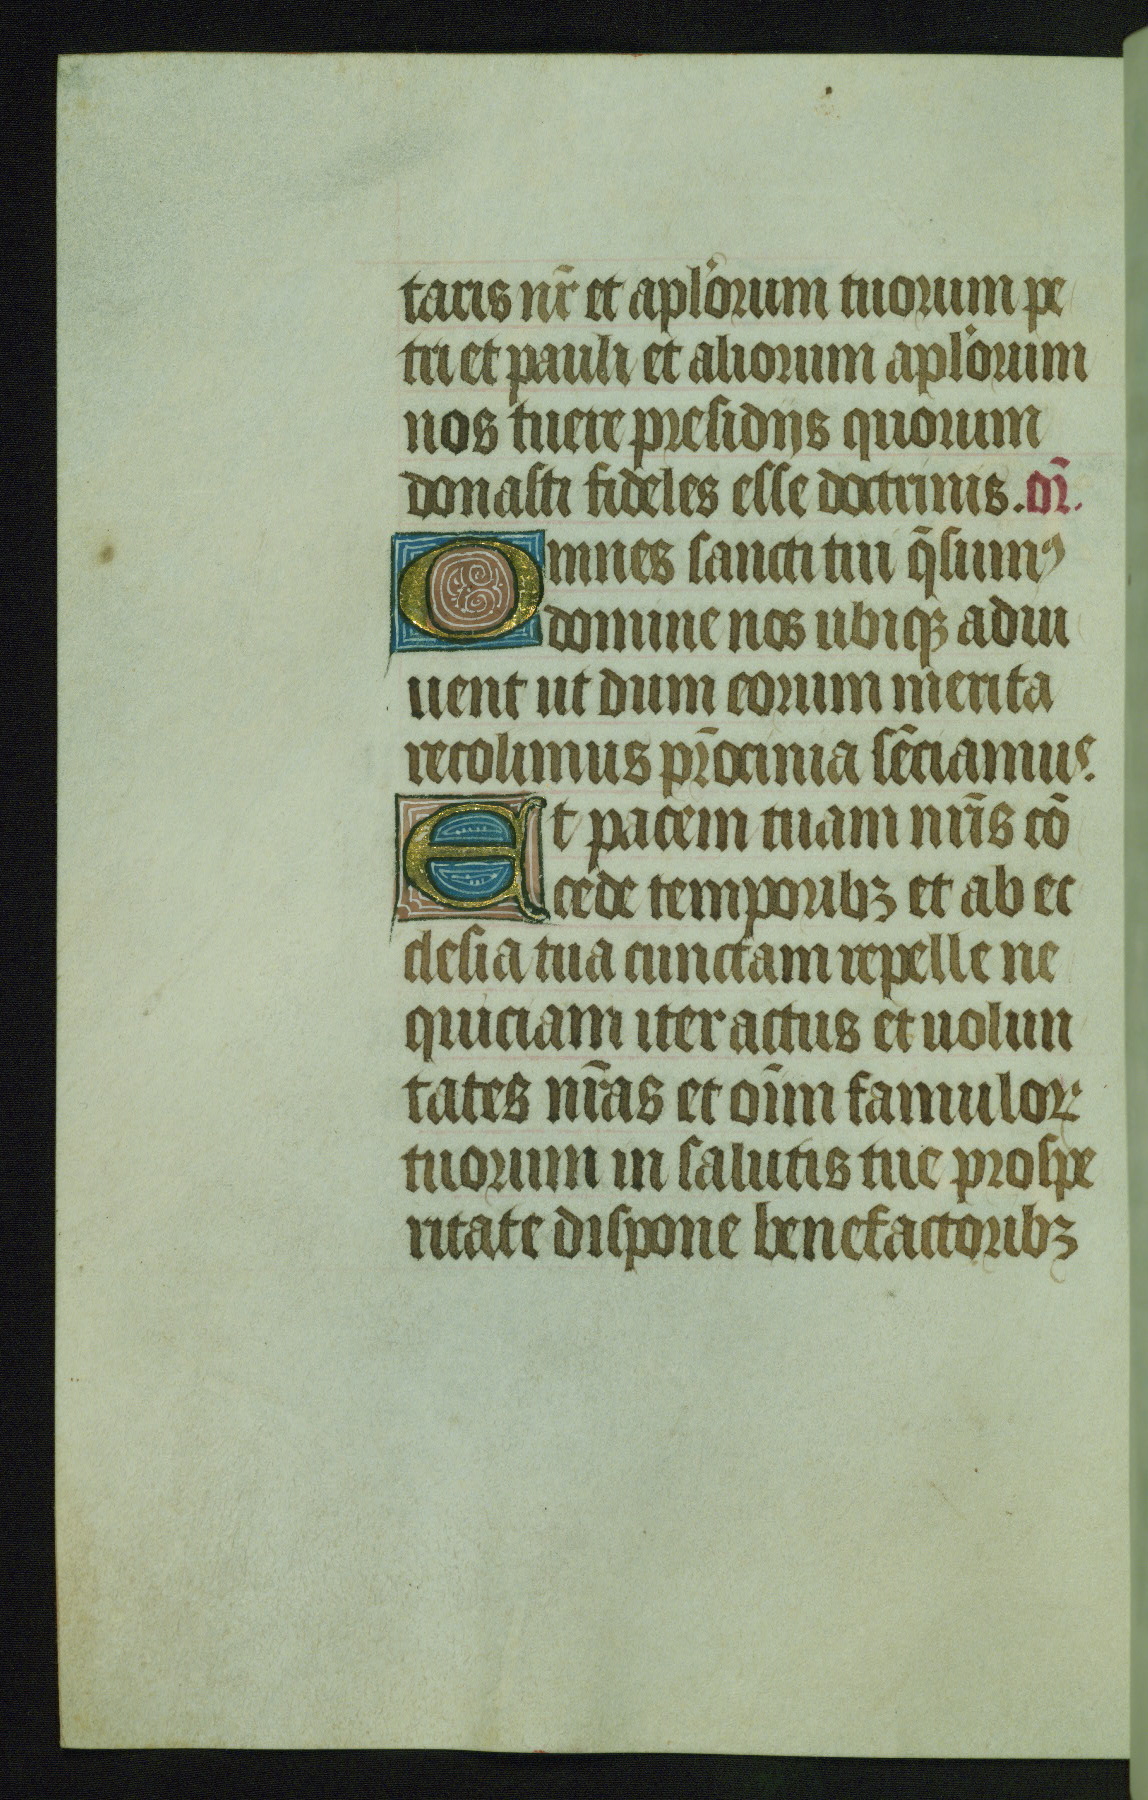 taris nr̄ et apl'orum tuorum pe
tri et pauli et aliorum apl'orum
nos tuere presidijs quorum
donasti fideles esse doctrinis. dn̄.
Omnes sancti tui q̄sumꝰ
domine nos ubiqꝫ adiu
uent ut dum eorum merita
recolimus pr̄ocinia sēciamus.
Et pacem tuam nr̄is cō
cede temporibꝫ et ab ec
clesia tua cunctam repelle ne
quiciam iter actus et uolun
tates nr̄as et oīm famulor
tuorum in salutis tue prospe
ritate dispone benefactoribꝫ